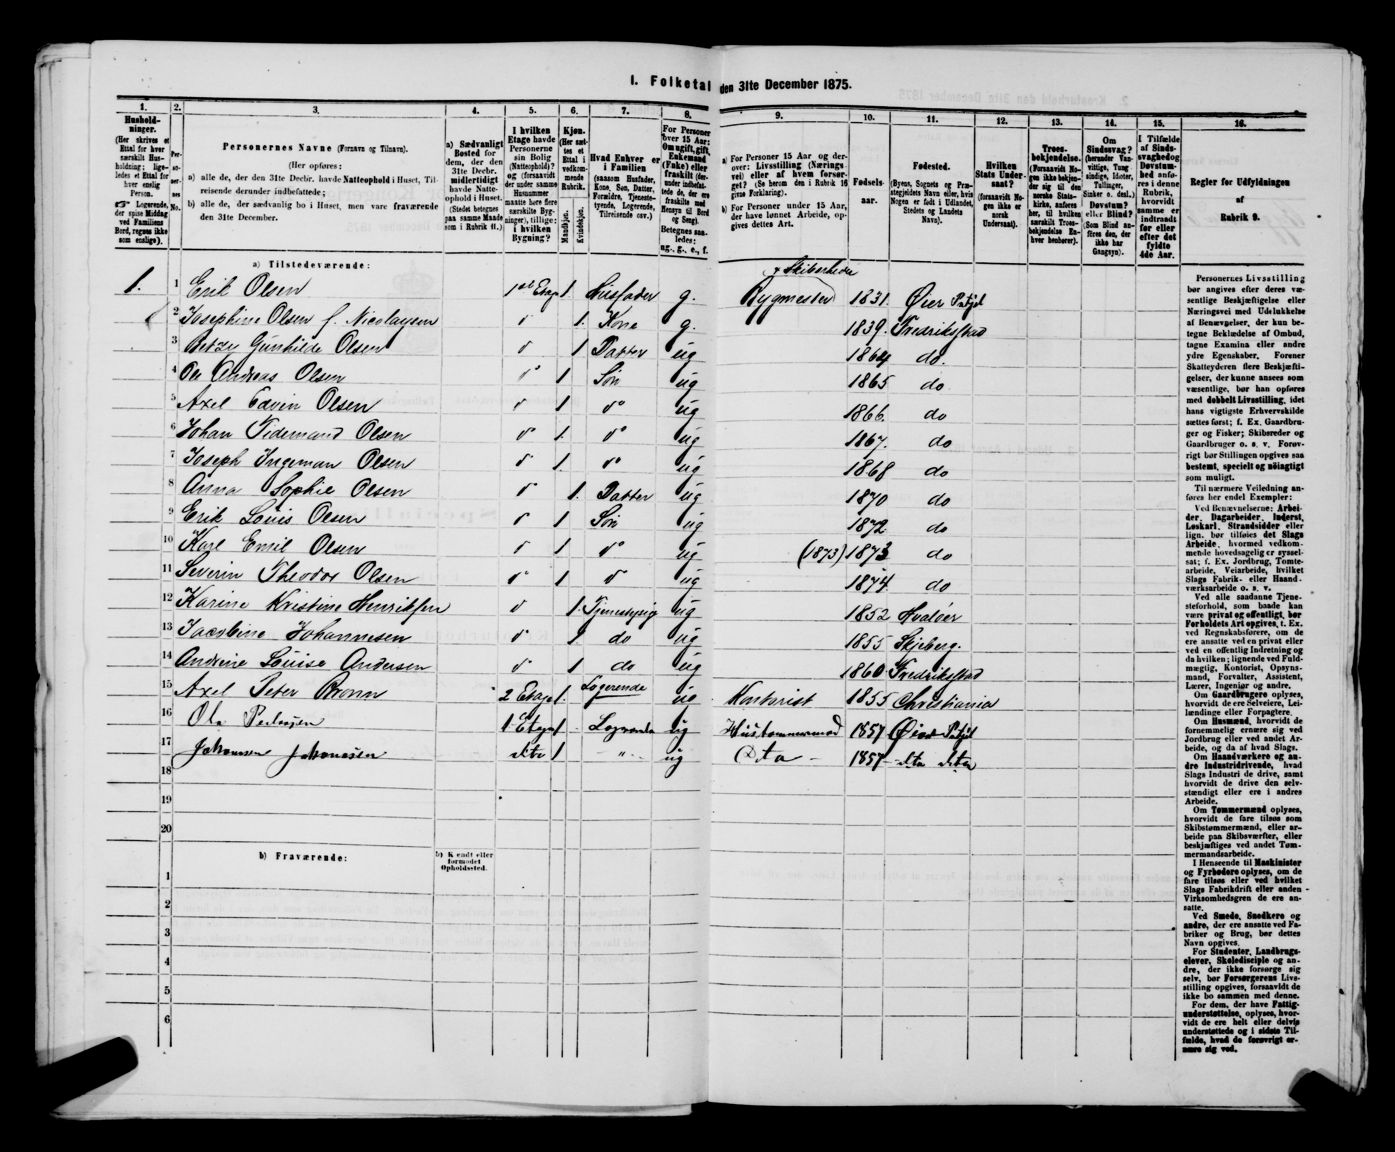 I. Folketal den 31te December 1875.
1. 2. 3. 4. 5. 6. 7. 8. 9. 10. 11. 12. 13. 14. 15. 16.
Husholdninger. (Her skrives et Ettal for hver særskilt Husholdning; ligeledes et Ettal for hver enslig Person. Logerende, der spise Middag ved Familiens Bord, regnes ikke som enslige).
Personernes No.
Personernes Navne (Fornavn og Tilnavn).
(Her opføres:
a) alle de, der den 31te Decbr. havde Natteophold i Huset, Tilreisende derunder indbefattede;
b) alle de, der sædvanlig bo i Huset, men vare fraværende den 31te December.
a) Sædvanligt Bosted for dem, der den 31te Decbr. midlertidigt havde Natteophold i Huset. (Stedet betegnes paa samme Maade som i Rubrik 11.)
I hvilken Etage havde Personerne sin Bolig (Natteophold)? og (forsaavidt der under samme Husnummer maatte høre flere særskilte Bygninger), tillige: i hvilken Bygning?
Kjøn. (Her sættes et Ettal i vedkommende Rubrik. Mandkjøn. Kvindekjøn.
Hvad Enhver er i Familien (saasom Husfader, Kone, Søn, Datter, Forældre, Tjenestetyende, Logerende, Tilreisende osv.)
For Personer over 15 Aar: Om ugift, gift, Enkemand (Enke) eller fraskilt (derunder indbefattede, der ere fraskilte med Hensyn til Bord og Seng). Betegnes saaledes: ug., g., e., f.
a) For Personer 15 Aar og derover: Livsstilling (Næringsvei) eller af hvem forsørget? (Se herom den i Rubrik 16 givne Forklaring).
b) For Personer under 15 Aar, der have lønnet Arbeide, opgives dettes Art.
Fødselsaar.
Fødested. (Byens, Sognets og Præstegjeldets Navn eller, hvis Nogen er født i Udlandet, Stedets og Landets Navn).
Hvilken Stats Undersaat? (forsaavidt Nogen ikke er norsk Undersaat).
Troesbekjendelse. (Forsaavidt Nogen ikke bekjender sig til den norske Statskirke, anføres her, til hvilken særskilt Troesbekjendelse Enhver henhører).
Om Sindssvag? (herunder Vanvittige, Tungsindige, Idioter, Tullinger, Sinker o. desl.) Døvstum? eller Blind? (Som Blind anføres den, der ikke har Gangsyn).
I Tilfælde af Sindssvaghed og Døvstumhed anføres i denne Rubrik, hvorvidt samme er indtraadt før eller efter det fyldte 4de Aar.
Regler for Udfyldningen af Rubrik 9.
a) Tilstedeværende:
1. 1 Erik Olsen 1ste Etage 1. Husfader g. Bygmester & Skibsrheder 1831. Øier Pstgjd
2 Josephine Olsen f. Nicolaysen do 1. Kone g. 1839. Fredrikstad
3 Betzy Gunhilde Olsen do 1 Datter ug 1864 do.
4 Ole Andreas Olsen do 1 Søn ug 1865 do
5 Axel Edvin Olsen do 1 do ug 1866. do
6 Johan Tidemand Olsen do 1. do ug 1867. do
7 Joseph Ingeman Olsen do 1. do ug 1868 do
8 Anna Sophie Olsen do 1. Datter ug 1870 do
9 Erik Louis Olsen do 1 Søn ug 1872 do
10 Karl Emil Olsen do 1 do ug (1873) 1873 do
11 Severin Theodor Olsen do 1 do ug 1874. do
12 Karine Kristine Henriksen do 1. Tjenestepige ug 1852 Hvaløer
13 Jacobine Johannesen do 1 do ug 1855 Skjeberg.
14 Andrine Louise Andersen do 1 do ug 1860 Fredrikstad
15 Axel Peter Bronn 2 Etage 1. Logerende ug Kontorist 1855 Christiania
16 Ole Pedersen 1 Etage 1 Logerende ug Hustømmermand 1857 Øier Pstgjd
17 Johannes Johansen dito 1 „ ug Dito 1857 dito dito
18
19
20
b) Fraværende:
b) Kjendt eller formodet Opholdssted.
1
2
3
4
5
6
Personernes Livsstilling bør angives efter deres væsentlige Beskjæftigelse eller Næringsvei med Udelukkelse af Benævnelser, der kun betegne Beklædelse af Ombud, tagne Examina eller andre ydre Egenskaber. Forener Skatteyderen flere Beskjæftigelser, der kunne ansees som væsentlige, bør han opføres med dobbelt Livsstilling, idet hans vigtigste Erhvervskilde sættes først; f. Ex. Gaardbruger og Fisker; Skibsreder og Gaardbruger o. s. v. Forøvrigt bør Stillingen opgives saa bestemt, specielt og nøiagtigt som muligt.
Til nærmere Veiledning anføres her endel Exempler:
Ved Benævnelserne: Arbeider, Dagarbeider, Inderst, Løskarl, Strandsidder eller lign. bør tilføies det Slags Arbeide, hvormed vedkommende hovedsagelig er sysselsat; f. Ex. Jordbrug, Tomtearbeide, Veiarbeide, hvilket Slags Fabrik- eller Haandværksarbeide o. s. v.
Ved alle saadanne Tjenesteforhold, som baade kan være privat og offentligt, bør Forholdets Art opgives, f. Ex. ved Regnskabsførere, om de ere ansatte ved en privat eller ved en offentlig Indretning og da hvilken; lignende ved Fuldmægtig, Kontorist, Opsynsmand, Forvalter, Assistent, Lærer, Ingeniør og andre.
Om Gaardbrugere oplyses, hvorvidt de ere Selveiere, Leilændinge eller Forpagtere.
Om Husmænd, hvorvidt de fornemmelig ernære sig ved Jordbrug eller ved andet Arbeide, og da af hvad Slags.
Om Haandværkere og andre Industridrivende, hvad Slags Industri de drive, samt hvorvidt de drive den selvstændigt eller ere i andres Arbeide.
Om Tømmermænd oplyses, hvorvidt de fare tilsøs som Skibstømmermænd, eller arbeide paa Skibsværfter, eller beskjæftiges ved andet Tømmermandsarbeide.
I Henseende til Maskinister og Fyrbødere oplyses, om de fare tilsøs eller ved hvilket Slags Fabrikdrift eller anden Virksomhedsgren de ere ansatte.
Ved Smede, Snedkere og andre, der ere ansatte ved Fabriker og Brug, bør dettes Navn opgives.
For Studenter, Landbrugselever, Skoledisciple og andre, der ikke forsørge sig selv, bør Forsørgerens Livsstilling opgives, forsaavidt de ikke bo sammen med denne.
For dem, der have Fattigunderstøttelse, oplyses, hvorvidt de ere helt eller delvis understøttede og i sidste Tilfælde, hvad de forøvrigt ernære sig ved.